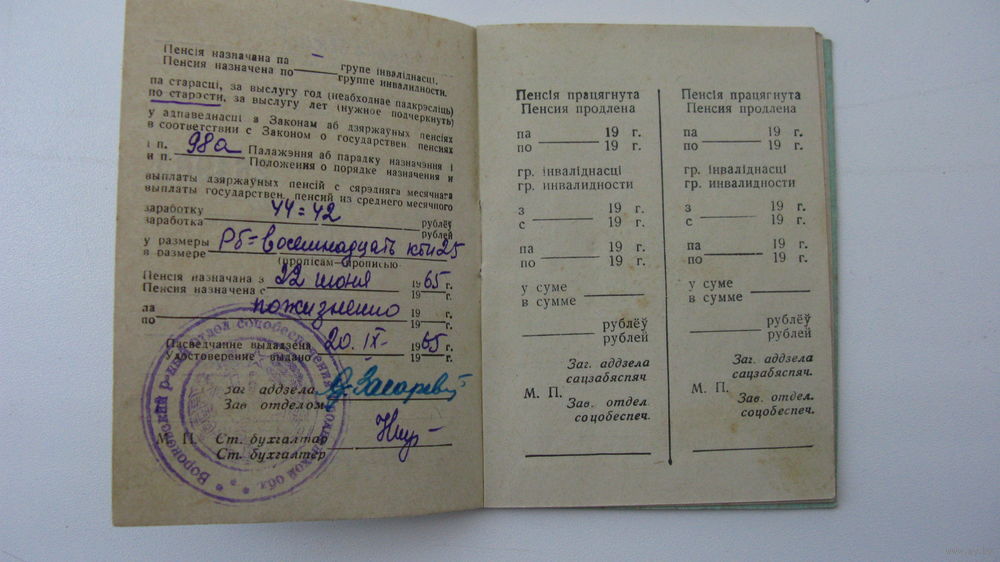 Пенсія назначана па — групе інваліднасці,
Пенсия назначена по группе инвалидности.
па старасці, за выслугу год (неабходнае падкрэсліць)
по старости, за выслугу лет (нужное подчеркнуть)
у адпаведнасці з Законам аб дзяржаўных пенсіях
в соответствии с Законом о государствен. пенсиях
і п. 98а Палажэння аб парадку назначэння і
и п. Положения о порядке назначения и
выплаты дзяржаўных пенсій с сярэдняга месячнага
выплаты государствен. пенсий из среднего месячного
заработку 44=42 рублёў
заработка рублей
у размеры Рб=восемнадцать 25
в размере (прописам-прописью)
Пенсія назначана з 22 июня 1965 г.
Пенсия назначена с 19 г.
па пожизненно 19 г.
по 19 г.
Пасведчанне выдадзена 20. IX- 1965 г.
Удостоверение выдано 19 г.
Заг аддзела
Зав отделом
М. П. Ст. бухгалтар
Ст. бухгалтер
Вороновский р-ный отдел соцобеспечения обл.
Пенсія працягнута
Пенсия продлена
па 19 г.
по 19 г.
гр. інваліднасці
гр. инвалидности
з 19 г.
с 19 г.
па 19 г.
по 19 г.
у суме
в сумме
рублёў
рублей
Заг. аддзела
сацзабяспяч.
М. П.
Зав. отдел.
соцобеспеч.
Пенсія працягнута
Пенсия продлена
па 19 г.
по 19 г.
гр. інваліднасці
гр. инвалидности
з 19 г.
с 19 г.
па 19 г.
по 19 г.
у суме
в сумме
рублёў
рублей
Заг. аддзела
сацзабяспяч.
М. П.
Зав. отдел.
соцобеспеч.